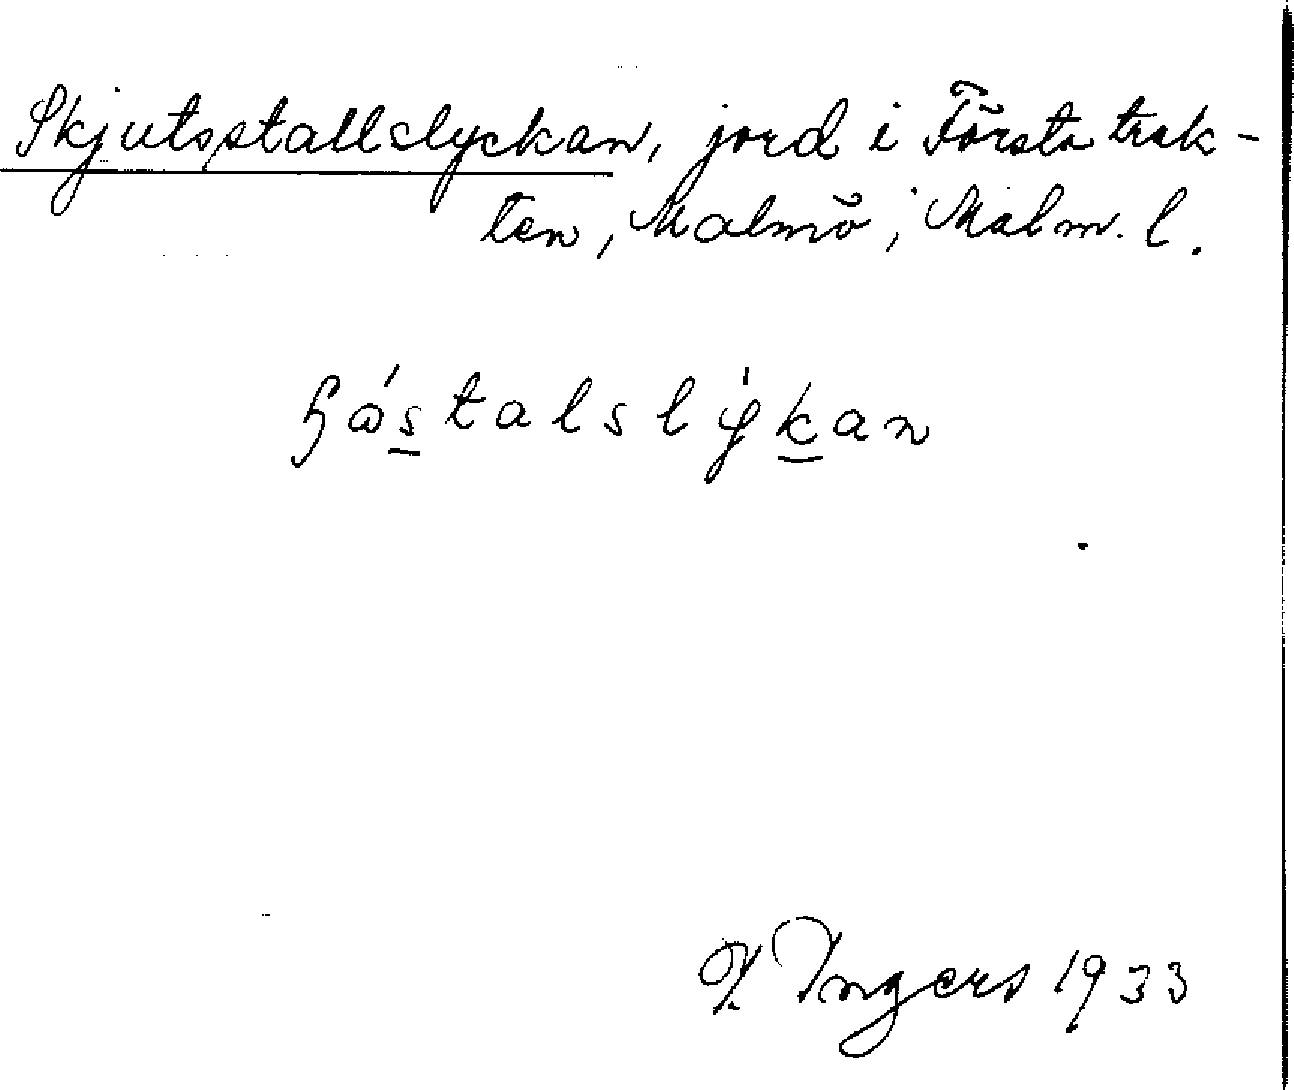 Skjutsstallslyckan, jord i Första trak-
ten, Malmö, Malm. l.
I Ingers 1933